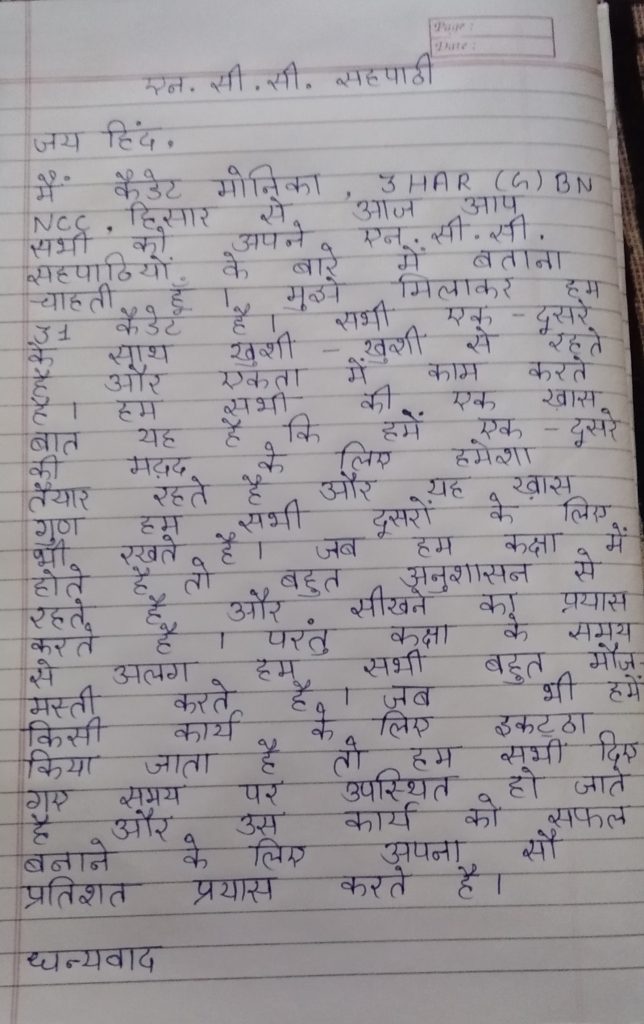 Page :
Date :
एन. सी. सी. सहपाठी
जय हिंद.
मैं कैडेट मोनिका, 3 HAR (G) BN
NCC, हिसार से आज आप
सभी को अपने एन. सी. सी.
सहपाठियों के बारे में बताना
चाहती हूँ। मुझे मिलाकर हम
31 कैडेट है। सभी एक - दूसरे
के साथ खुशी - खुशी से रहते
है और एकता में काम करते
है। हम सभी की एक खास
बात यह है कि हमें एक - दूसरे
की मदद के लिए हमेशा
तैयार रहते है और यह खास
गुण हम सभी दूसरों के लिए
भी रखते है। जब हम कक्षा में
होते है तो बहुत अनुशासन से
रहते है और सीखने का प्रयास
करते है। परंतु कक्षा के समय
से अलग हम सभी बहुत मौज
मस्ती करते है। जब भी हमें
किसी कार्य के लिए इकट्ठा
किया जाता है तो हम सभी दिए
गए समय पर उपस्थित हो जाते
है और उस कार्य को सफल
बनाने के लिए अपना सौ
प्रतिशत प्रयास करते है।
धन्यवाद